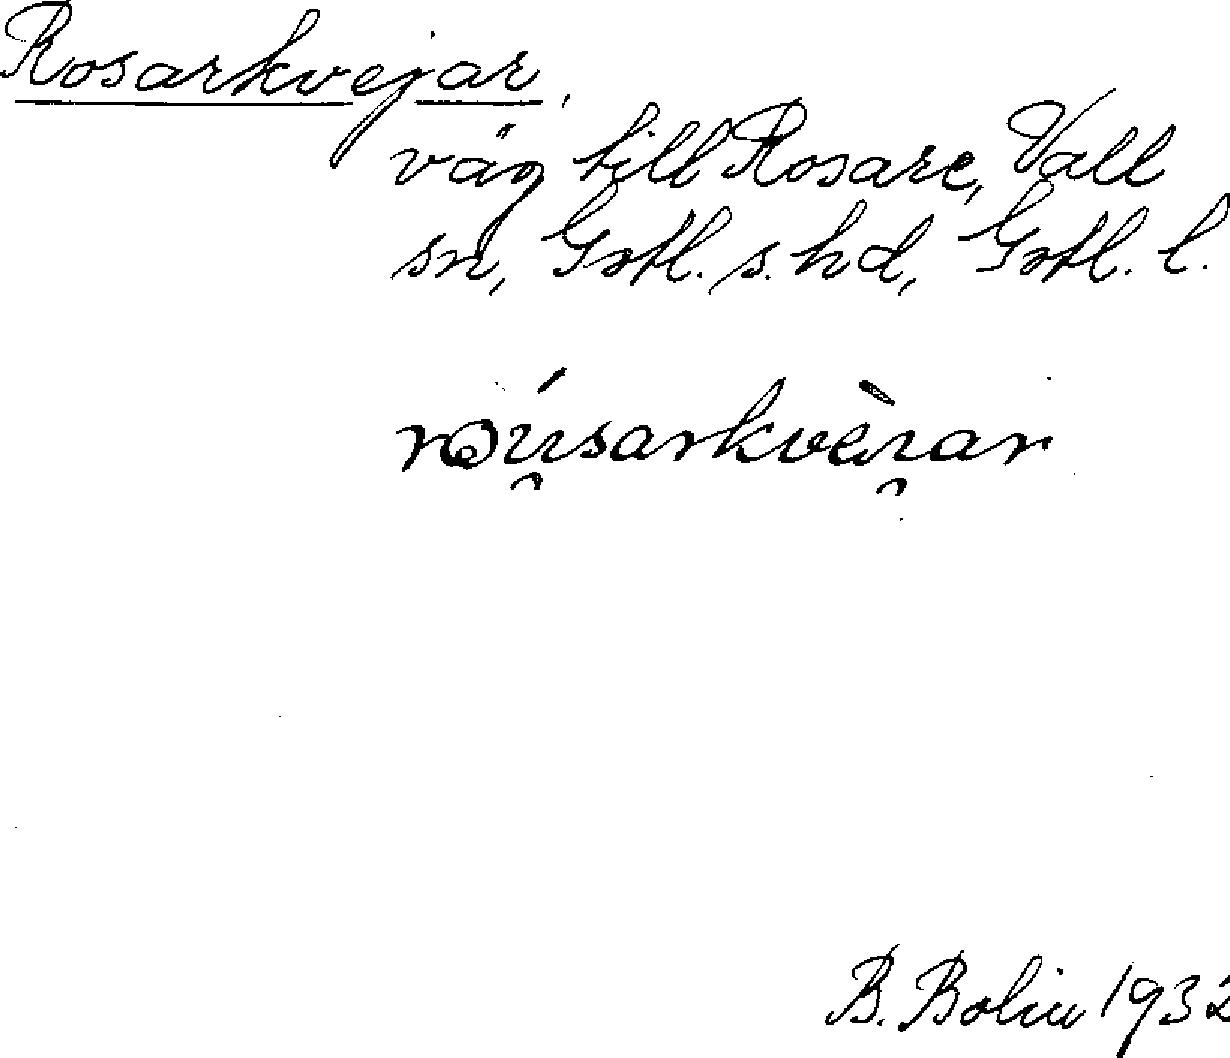 Rosarkvejar,
väg till Rosare, Vall
sn, Gotl. s. hd, Gotl. l.
B. Bolin 1932